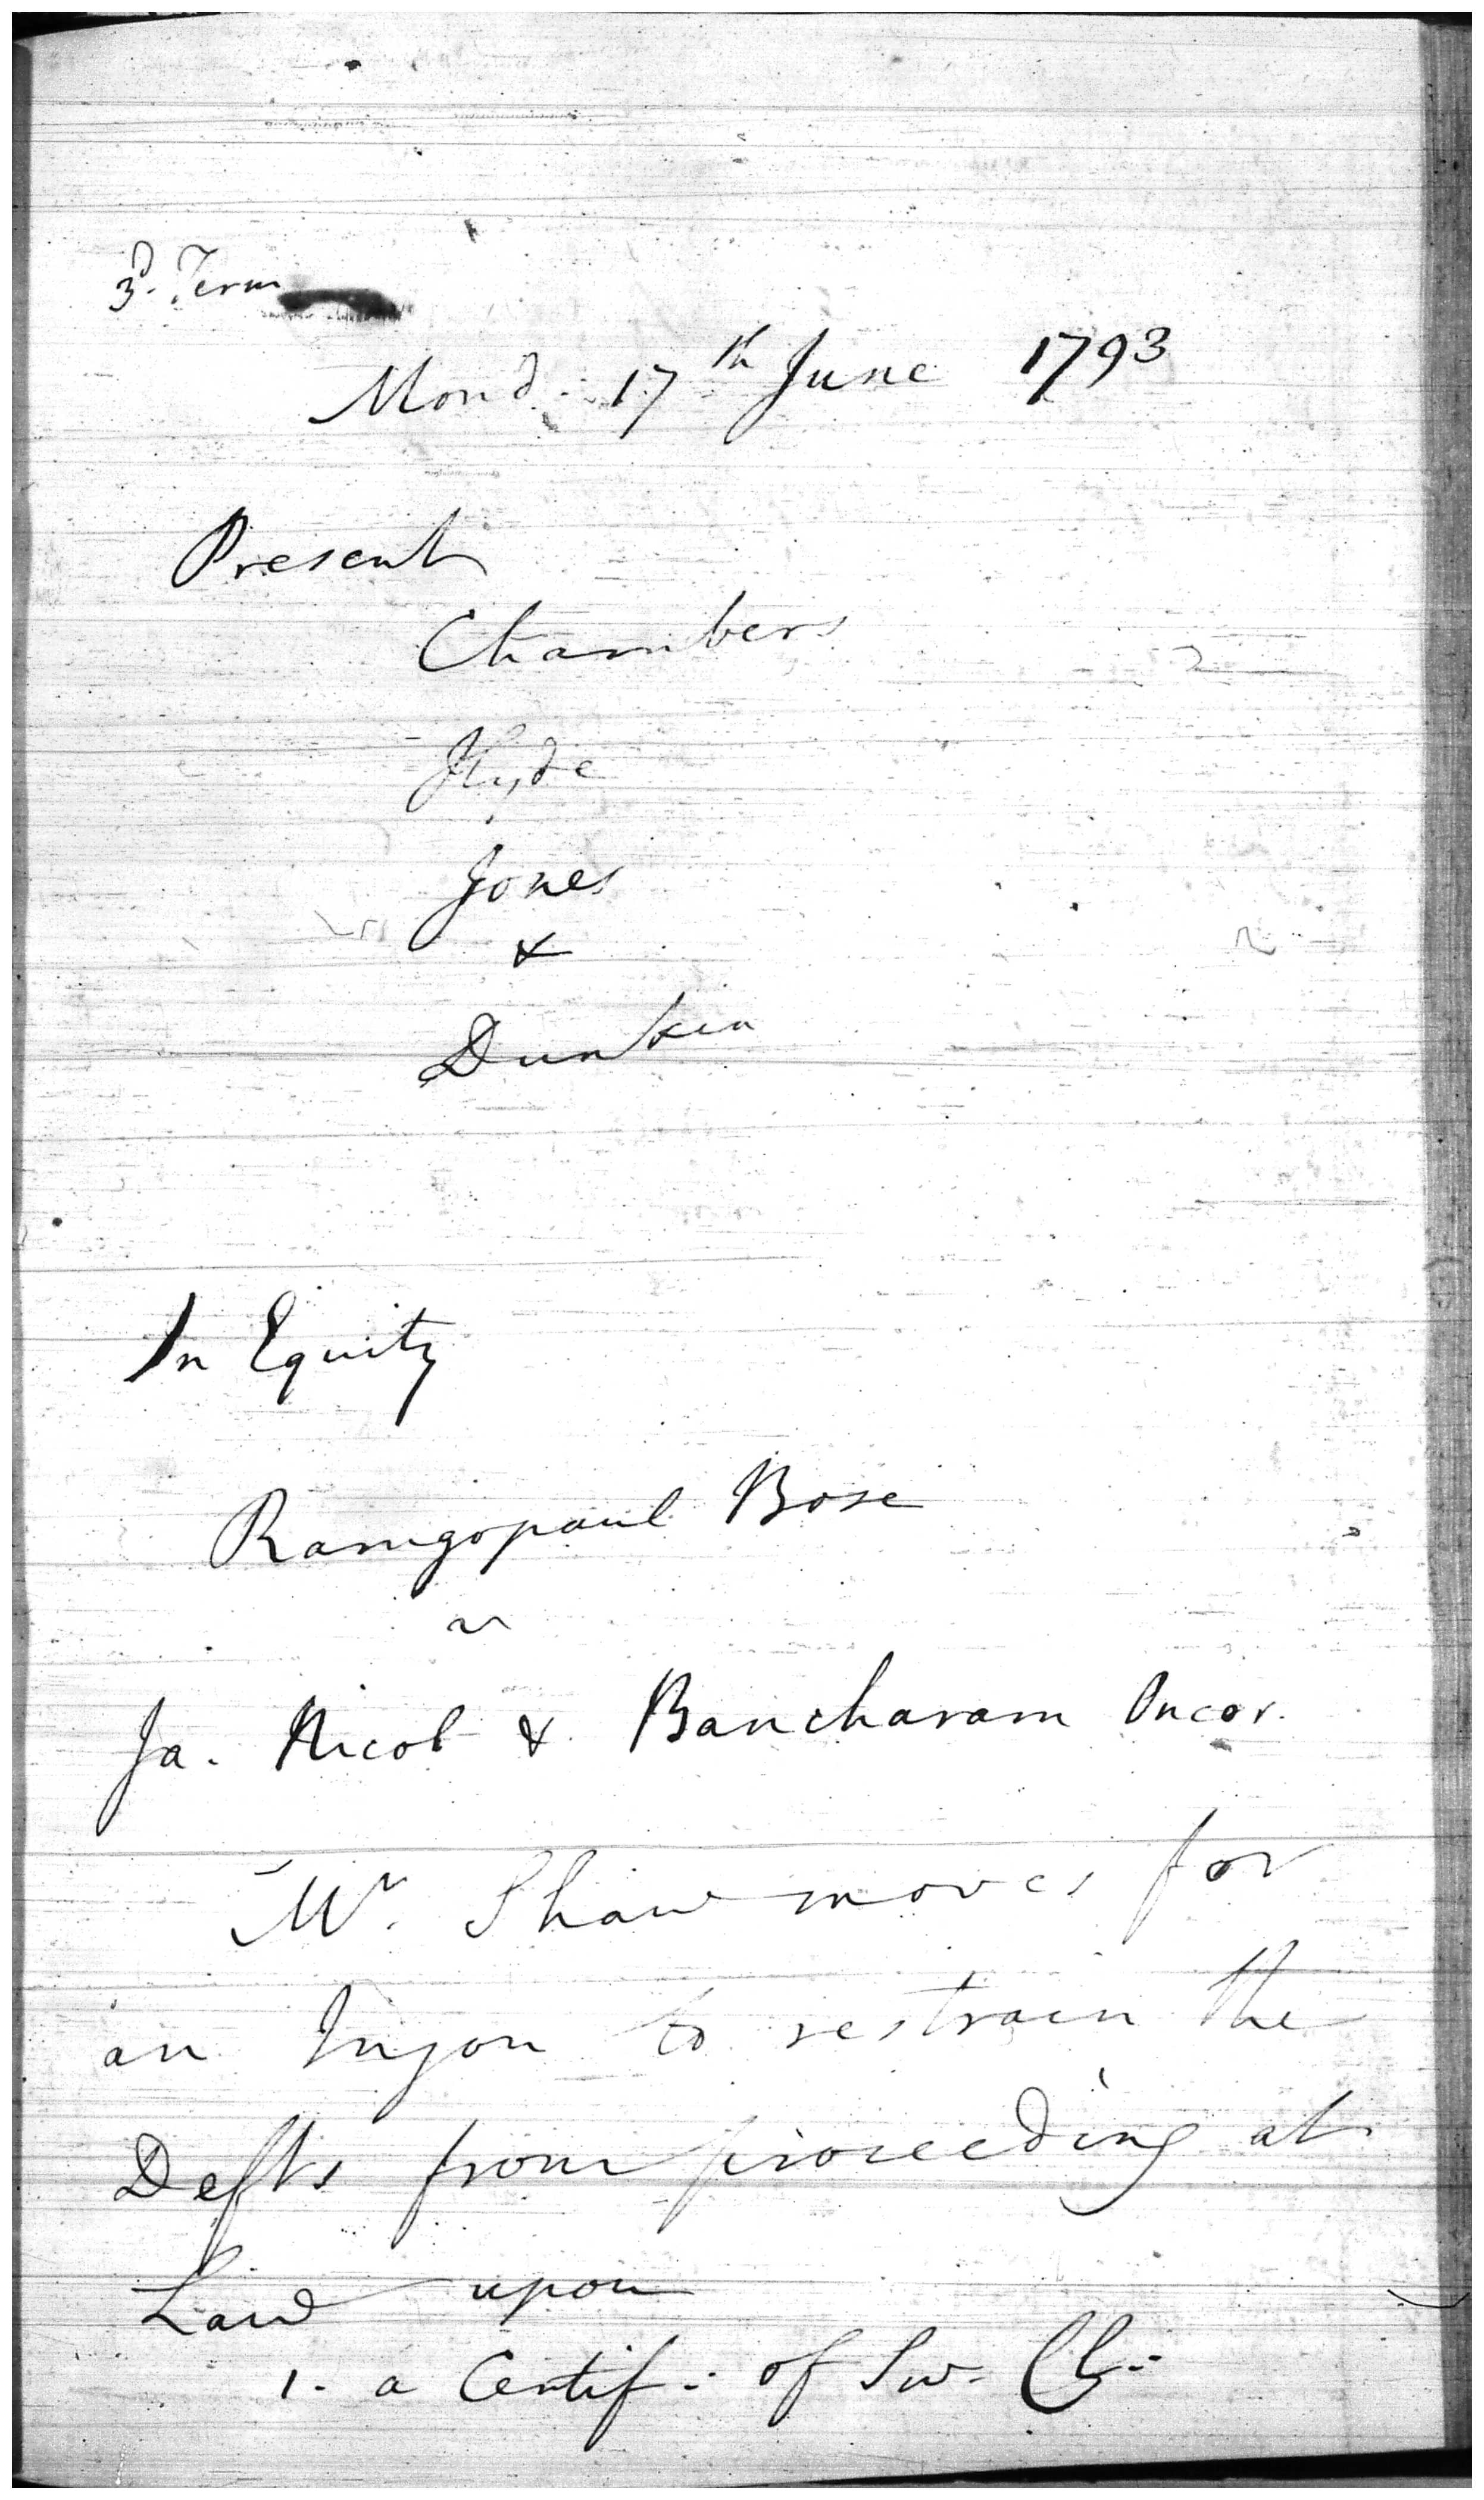 3d. Term
Mond. 17th June 1793
Present
Chambers
Hyde
Jones
&
Dunkin
In Equity
Ramgopaul Bose
v
Ja. Nicol & Bancharam
Mr. Shaw moves for
an Injon to restrain the
Defts from proceeding at
Law upon
1. a Certif: of Sw. Cl: